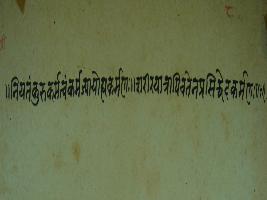 ॥नियतंकुरुकर्मत्वंकर्मज्यायोह्यकर्मणः॥शरीरयात्रापिचतेनप्रसिद्ध्येदकर्मणः